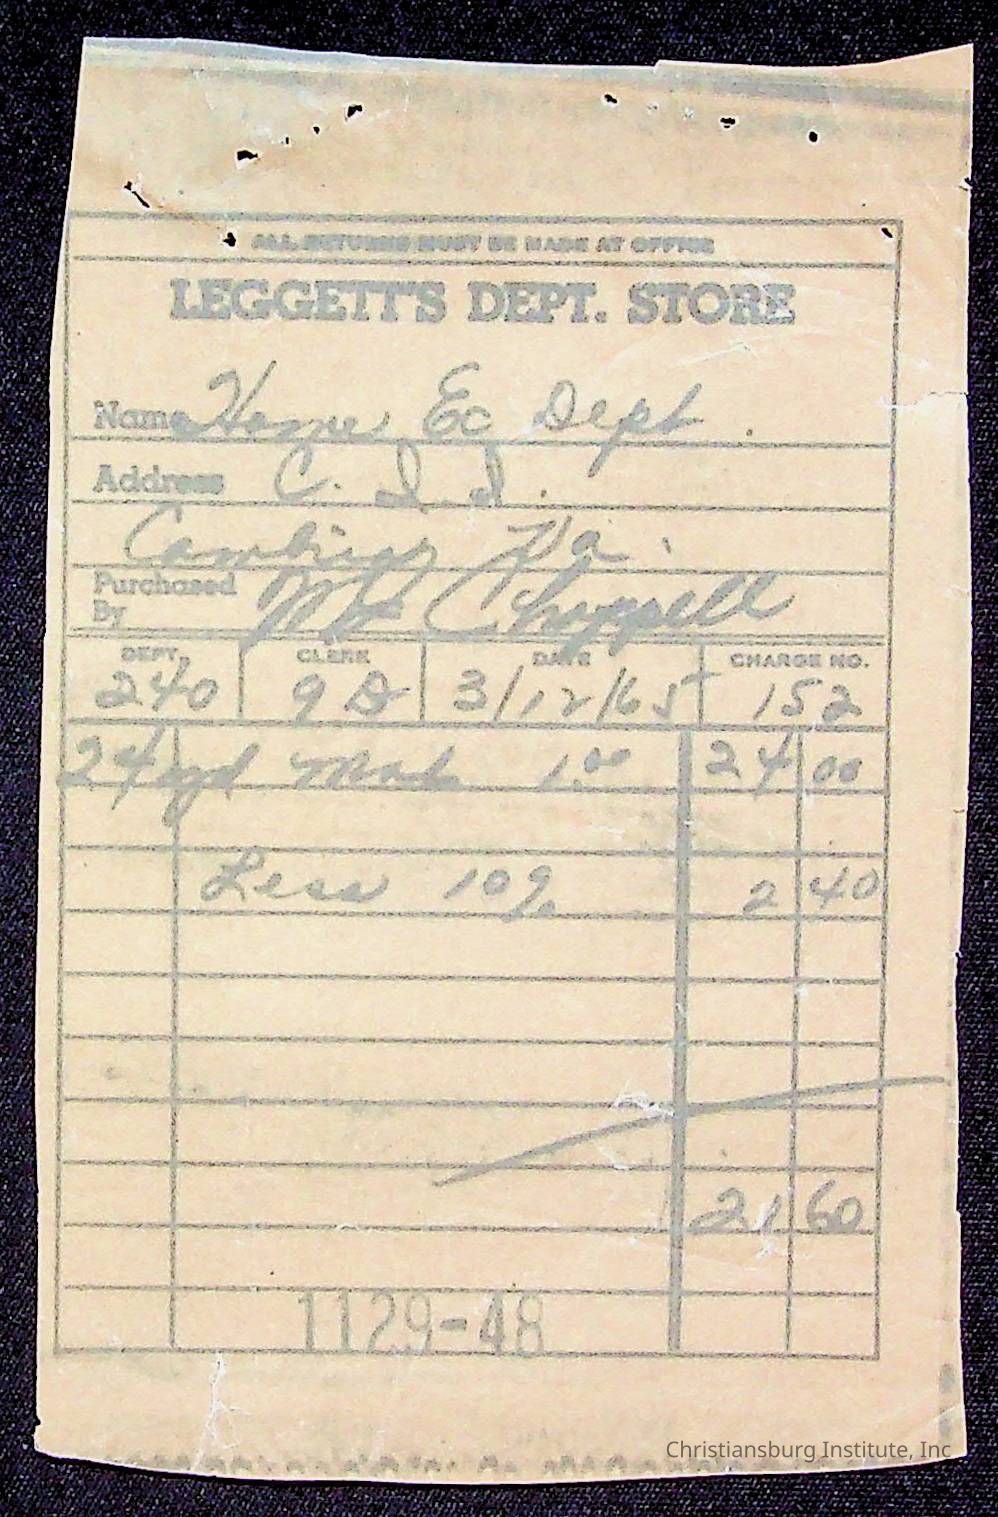 ALL RETURNS MUST BE MADE AT OFFICE
LEGGETT'S DEPT. STORE
Name Home Ec Dept.
Address C. I. I.
Cambria Va.
Purchased By Mr Chappell
DEPT. CLERK DATE CHARGE NO.
240 9 D 3/12/65 152
24 yd Mat 1.00 24 00
Less 10% 2 40
21 60
1129-48
Christiansburg Institute, Inc